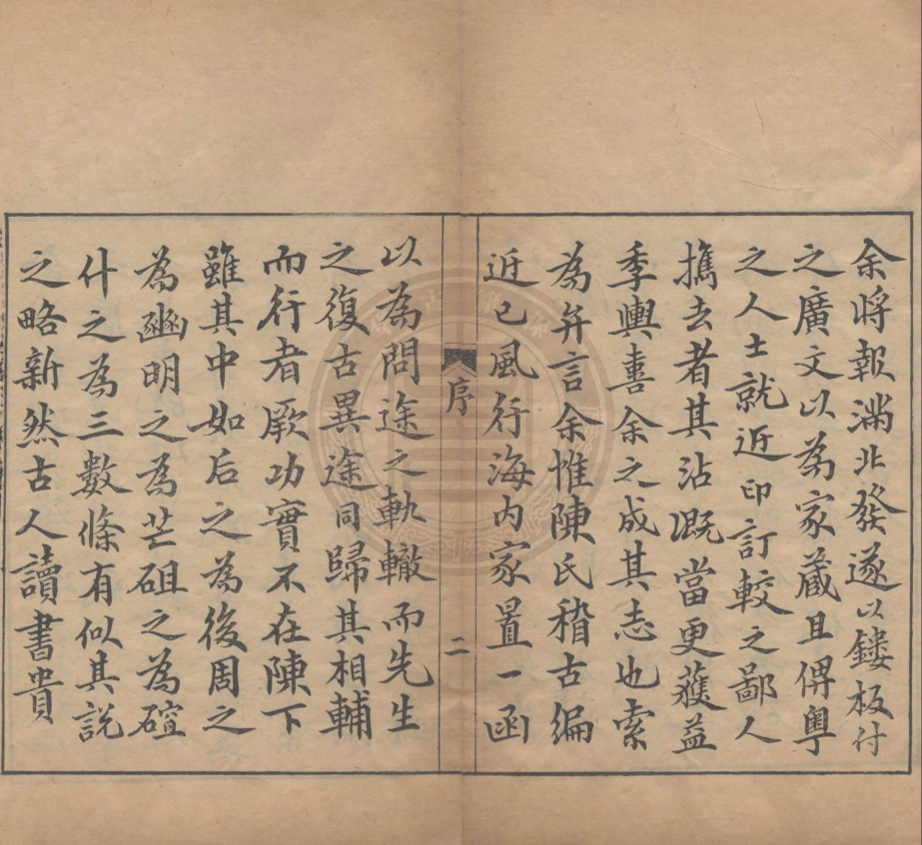 余將報滿北發遂以鏤板付
之廣文以為家藏且俾粵
之人士就近印訂較之鄙人
攜去者其沾溉當更蒦益
季輿喜余之成其志也索
為弁言余惟陳氏稽古編
近已風行海内家置一函
序
二
以為問途之軌轍而先生
之復古異途同歸其相輔
而行者厥功實不在陳下
雖其中如后之為後周之
為豳明之為芒砠之為磑
什之為三數條有似其說
之略新然古人讀書貴